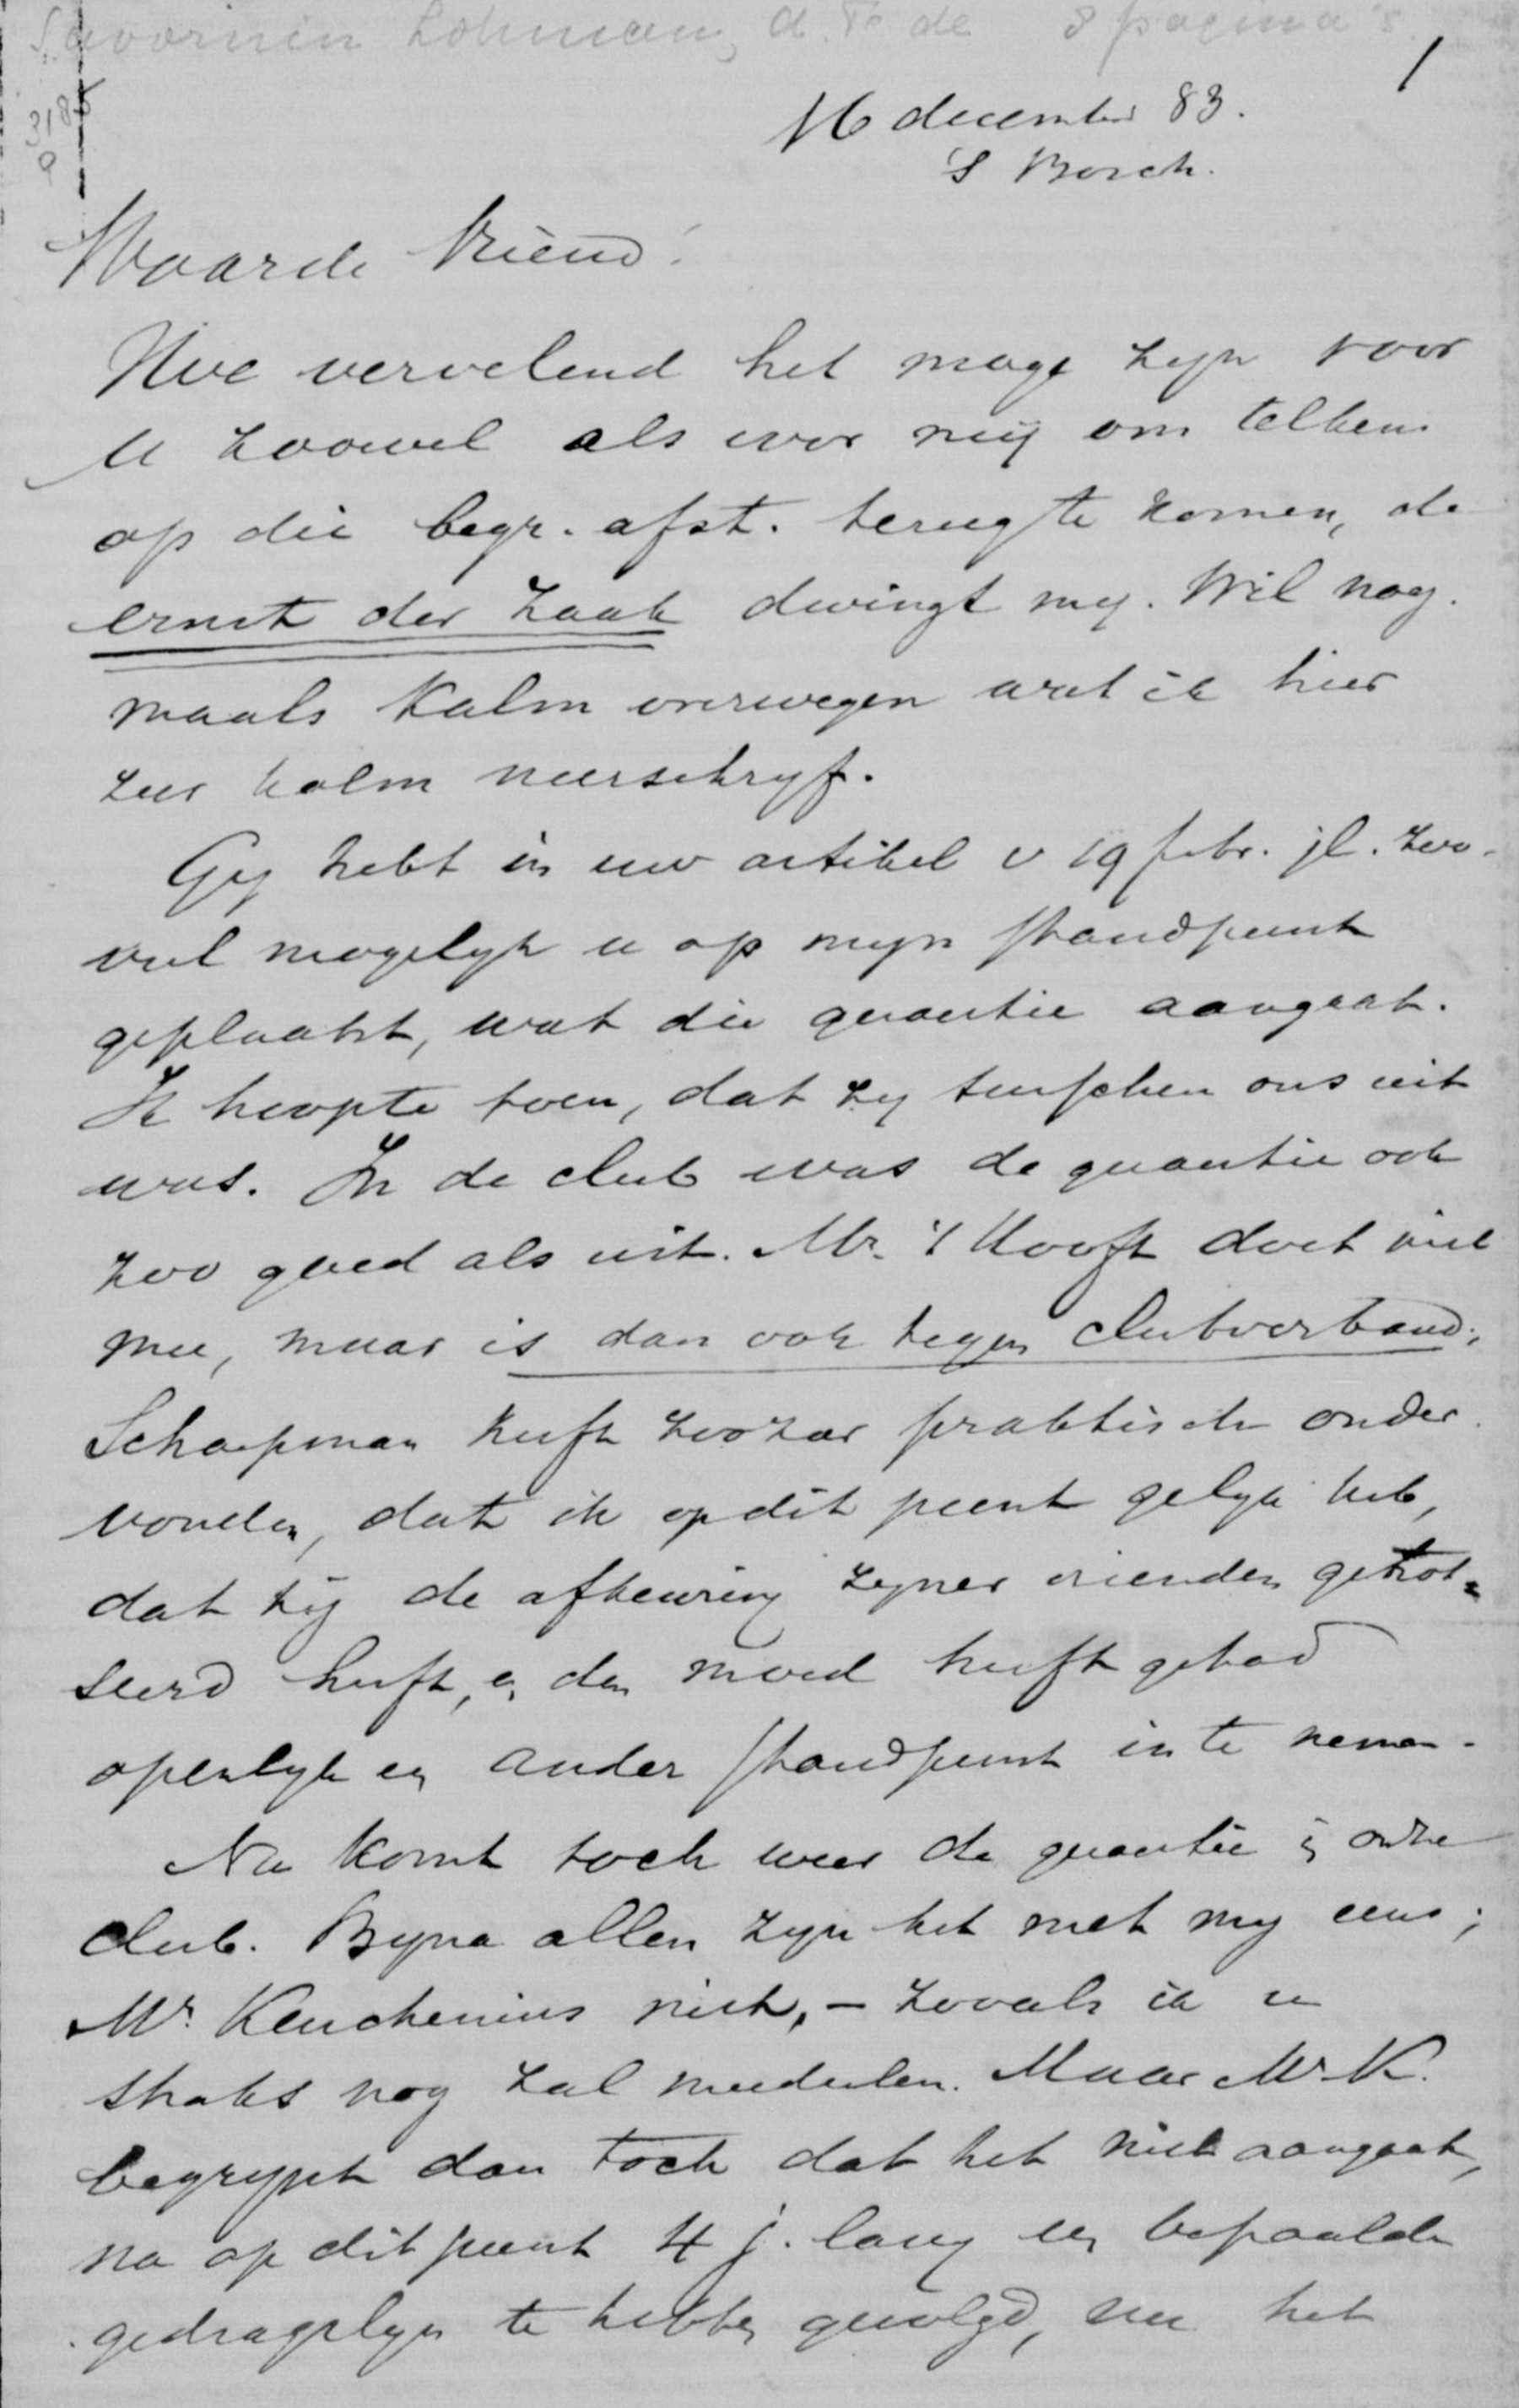 Savornin Lohman, d. Fe de 8 pagina's
1
3185
a
16 december 83.
'S Bosch.
Waarde Vriend!
Hoe vervelend het moge zyn voor
U zoowel als voor mij om telkens
op die begr. afst. terug te komen, de
ernst der zaak dwingt my. Wil nog-
maals kalm overwegen wat ik hier
zeer kalm neerschryf.
Gy hebt in uw artikel v 19 febr. jl. zoo-
veel mogelyk u op myn standpunt
geplaatst, wat die quaestie aangaat.
Ik hoopte toen, dat zy tusschen ons uit
was. In de club was de quaestie ook
zoo goed als uit. Mr. 't Hooft doet niet
mee, maar is dan ook tegen clubverband;
Schaepman heeft zoozeer praktisch onder-
vonden, dat ik op dit punt gelyk heb,
dat hij de afkeuring zyner vrienden getrot=
seerd heeft, en den moed heeft gehad
openlyk een ander standpunt in te nemen.
Nu komt toch weer de quaestie in onze
club. Byna allen zyn het met my eens;
Mr. Keuchenius niet, - zooals ik u
straks nog zal meedeelen. Maar Mr. K.
begrypt dan toch dat het niet aangaat,
na op dit punt 4 j. lang een bepaalde
gedragslyn te hebben gevolgd, nu het